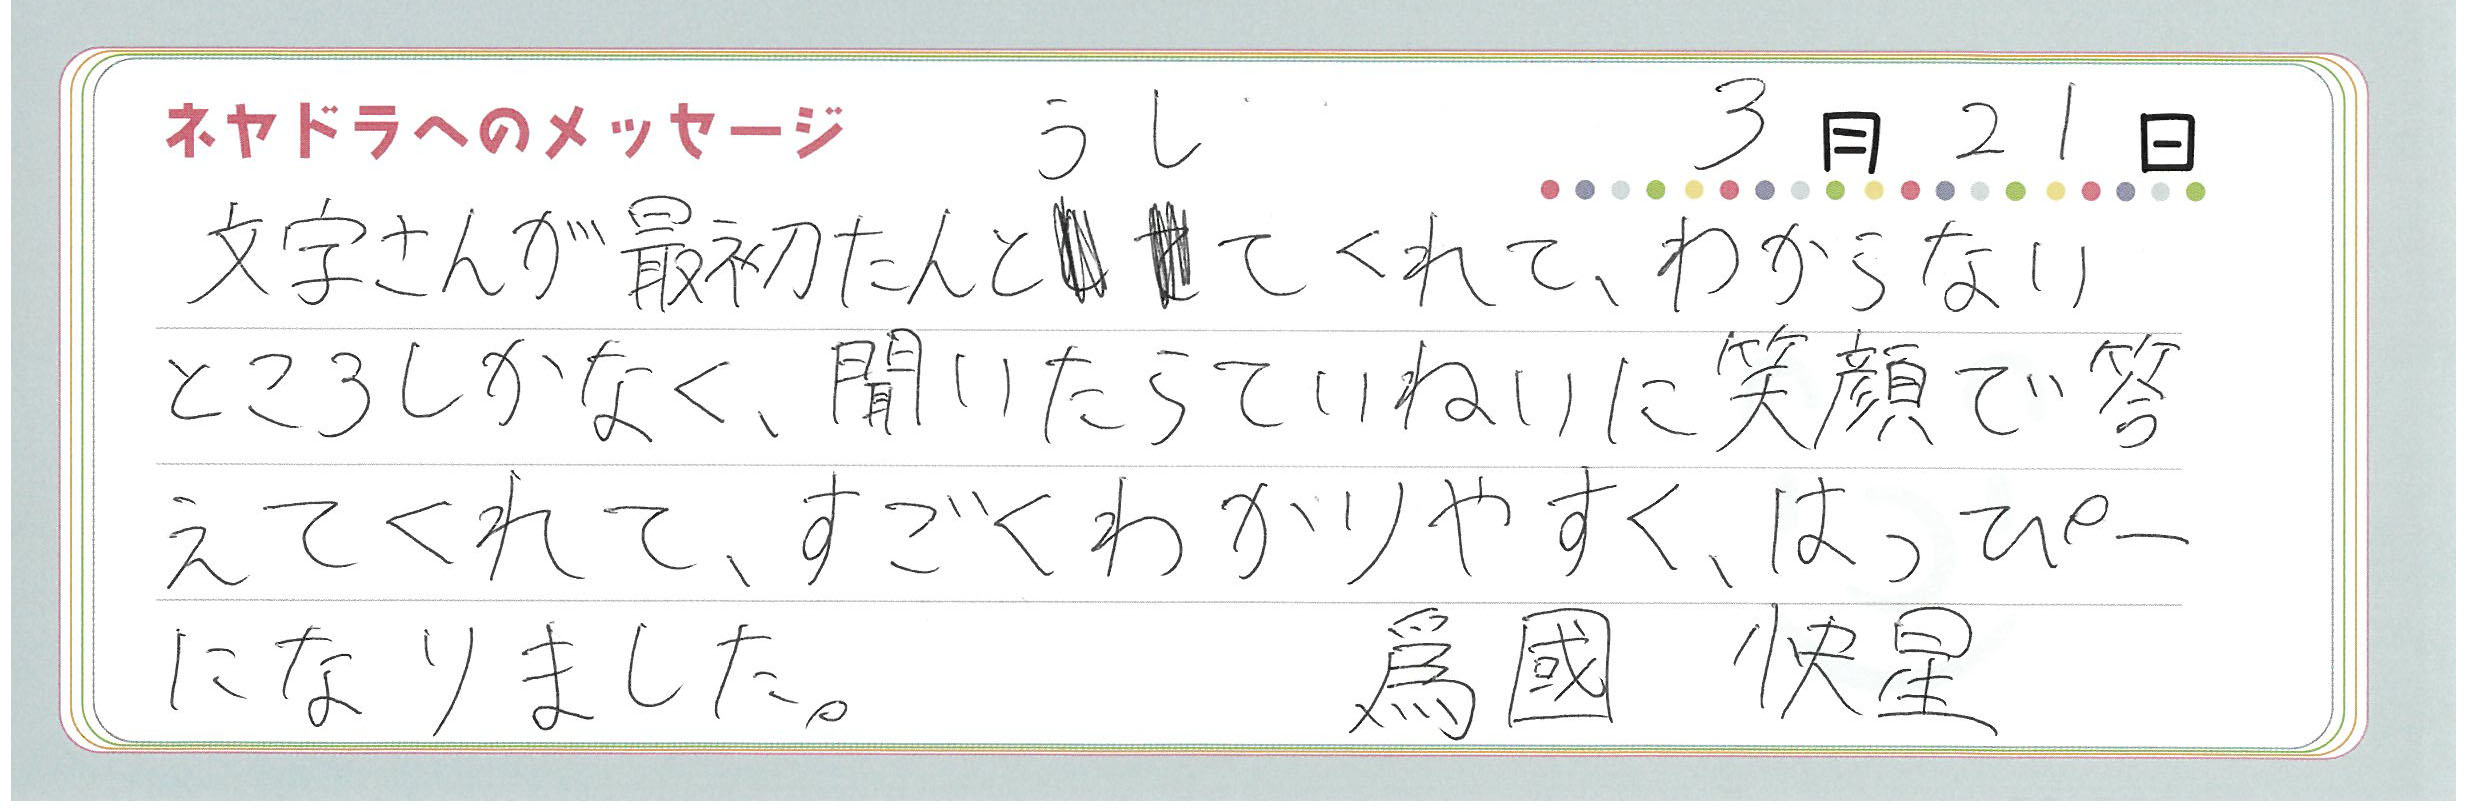 ネヤドラへのメッセージ 3月21日
文字さんが最初たんとうしてくれて、わからない
ところしかなく、聞いたらていねいに笑顔で答
えてくれて、すごくわかりやすく、はっぴー
になりました。 爲國 快星